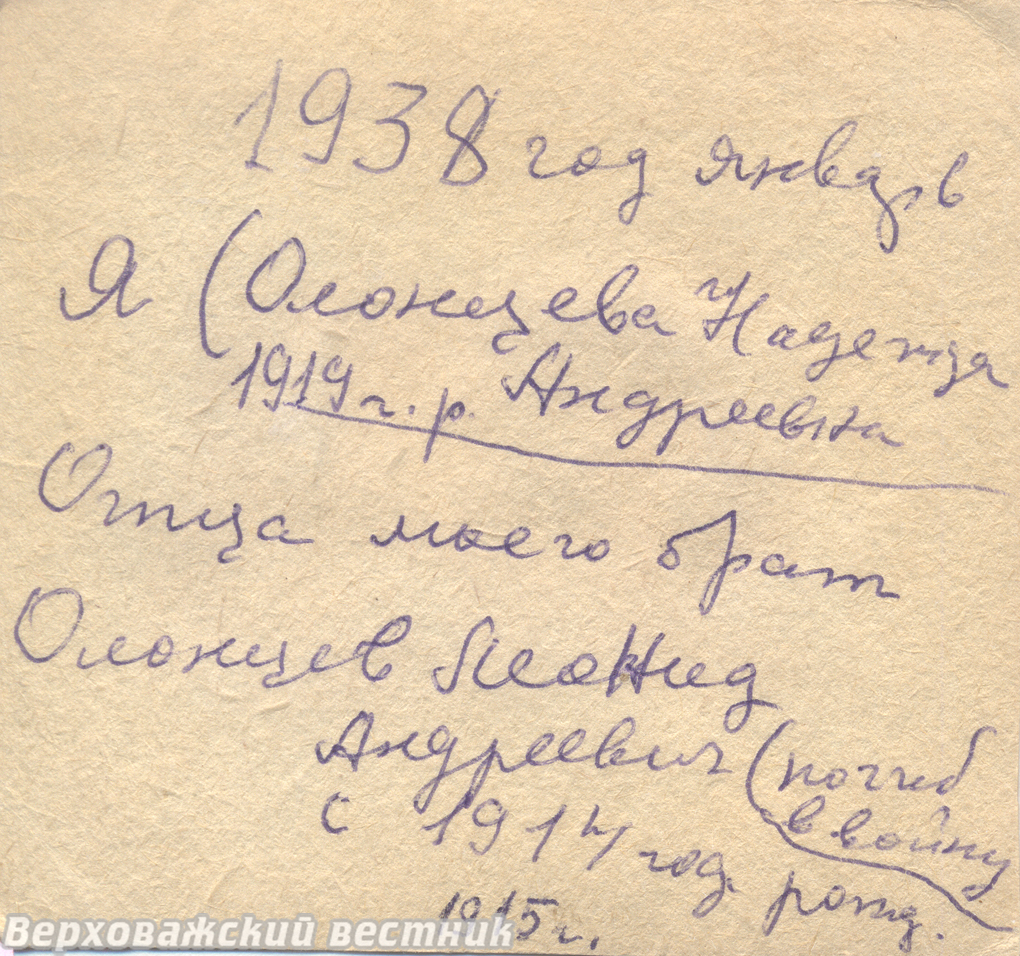 1938 год январь
Я (Олонцева Надежда
1919 г.р. Андреевна
Отца моего брат
Олонцев Леонид
Андреевич (погиб
в войну
с 1914 год. рожд.
1915 г.
Верховажский вестник